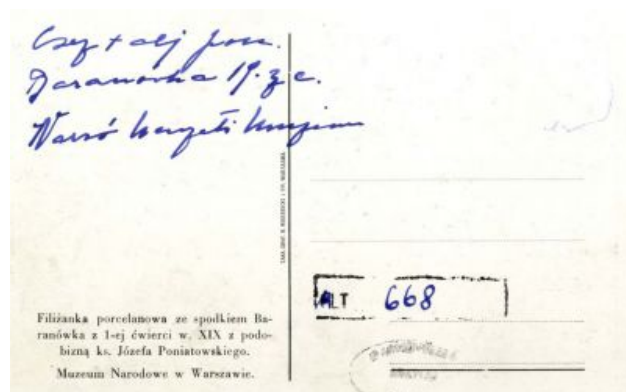 + alj porc.
Baranovka 19. sz e.
Varsó Nemzeti Muzeum
Filiżanka porcelanowa ze spodkiem Ba-
ranówka z 1-ej ćwierci w. XIX z podo-
bizną ks. Józefa Poniatowskiego.
Muzeum Narodowe w Warszawie.
ALT 668